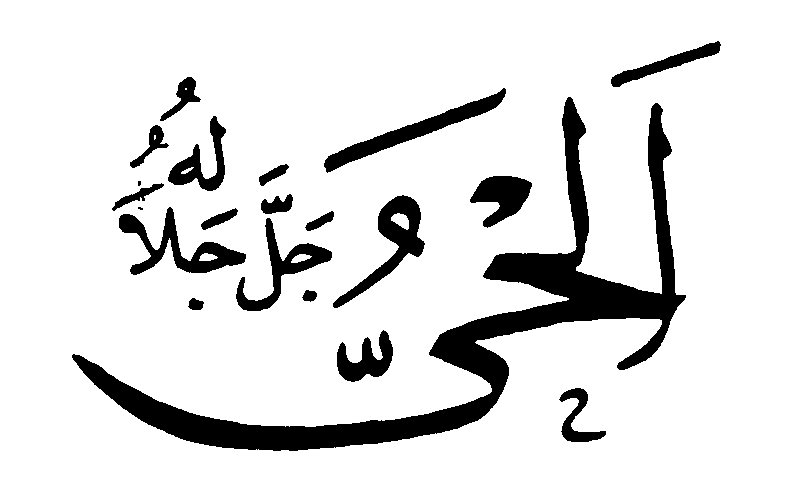 اَلْحَيُّ جَلَّ جَلَالُهُ